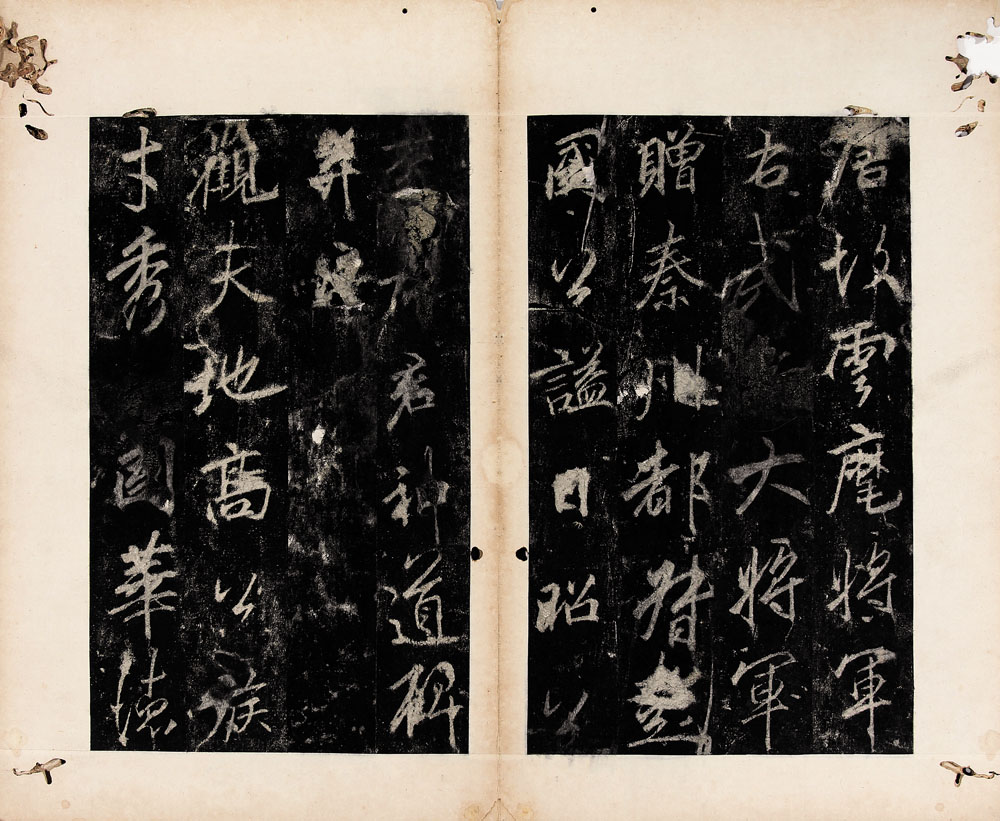 唐故雲麾將軍
右武大將軍
贈秦州都督彭
國公謚曰昭公
府君神道碑
并序
觀夫地高公族
才秀國華德